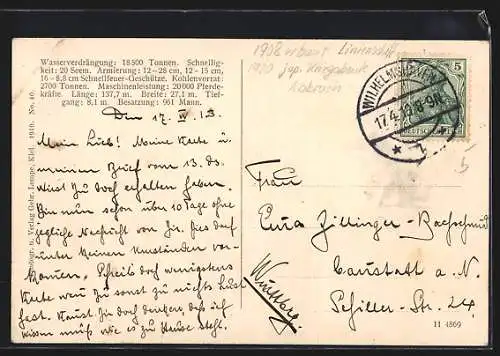 Wasserverdrängung: 18500 Tonnen. Schnellig-
keit: 20 Seem. Armierung: 12-28 cm, 12-15 cm,
16-8,8 cm Schnellfeuer-Geschütze. Kohlenvorrat:
2700 Tonnen. Maschinenleistung: 20000 Pferde-
kräfte. Länge: 137,7 m. Breite: 27,1 m. Tief-
gang: 8,1 m. Besatzung: 961 Mann.
Den 17. IV 13.
Mein Lieb! Meine Karte u.
meinen Brief vom 13. ds
wirst Du doch erhalten haben.
Bin nun schon über 10 Tage ohne
jegliche Nachricht von Dir. Dies darf
unter keinen Umständen vor-
kommen. Schreib doch wenigstens
Karte wenn Du sonst zu nichts Lust
hast. Kannst Dir doch denken, daß ich
wissen muß wie es zu Hause steht.
u. Verlag Gebr. Lempe, Kiel. 1910. No. 40.
1908 erbautes Linienschiff
1920 jap. Kriegsbeute
WILHELMSHAVEN
17.4.13.8-9N.
* 1
5
DEUTSCHES REICH
Frau
Zillinger-
Cannstatt a. N.
Schiller-Str. 24
Württbg.
11 4869